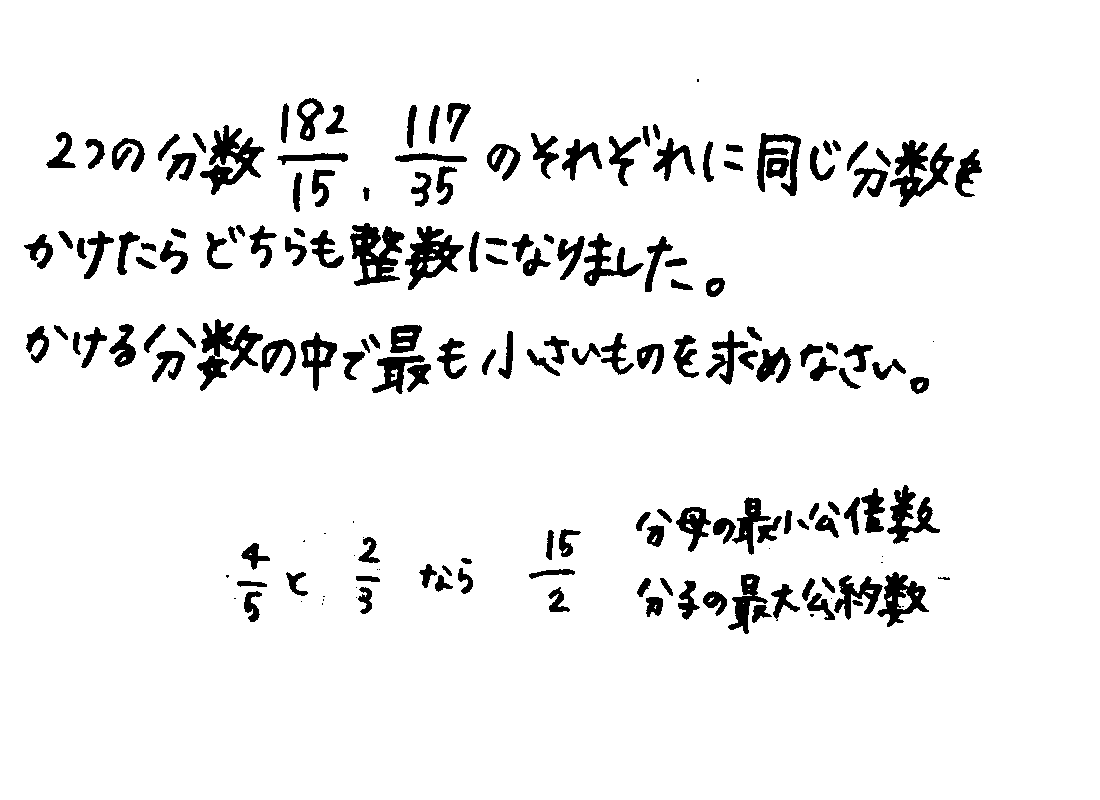 2つの分数 182/15、117/35 のそれぞれに同じ分数を
かけたらどちらも整数になりました。
かける分数の中で最も小さいものを求めなさい。
4/5 と 2/3 なら 15/2 分母の最小公倍数
分子の最大公約数